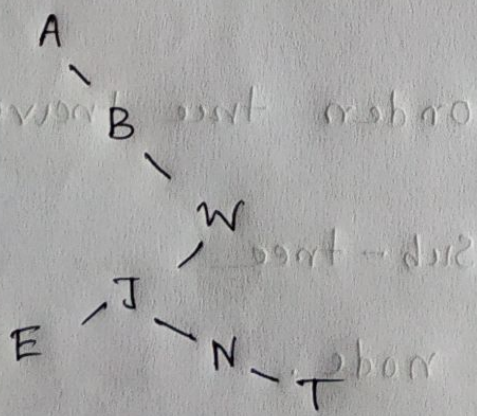 A
B
W
J
E
N
T